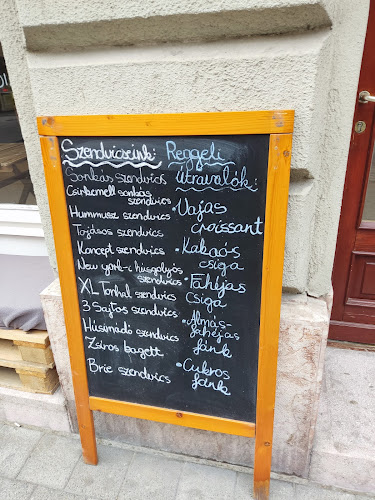 Szendvicseink:
Sonkás szendvics
Csirkemell sonkás
szendvics
Hummusz szendvics
Tojásos szendvics
Koncept szendvics
New york-i húsgolyós
szendvics
XL Tonhal szendvics
3 Sajtos szendvics
Húsimádó szendvics
Zsíros bagett
Brie szendvics
Reggeli
útravalók:
• Vajas
croissant
• Kakaós
csiga
• Fahéjas
csiga
• Almás-
fahéjas
fánk
• Cukros
fánk